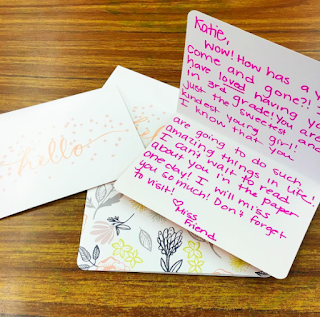 hello
hel
Katie,
Wow! How has a y
come and gone?! I
have loved having yo
in 3rd grade! You are
just the sweetest and
kindest young girl!
I know that you
are going to do such
amazing things in life!
I can't wait to read
about you in the paper
one day! I will miss
you so much! Don't forget
to visit!
♡ Miss
Friend